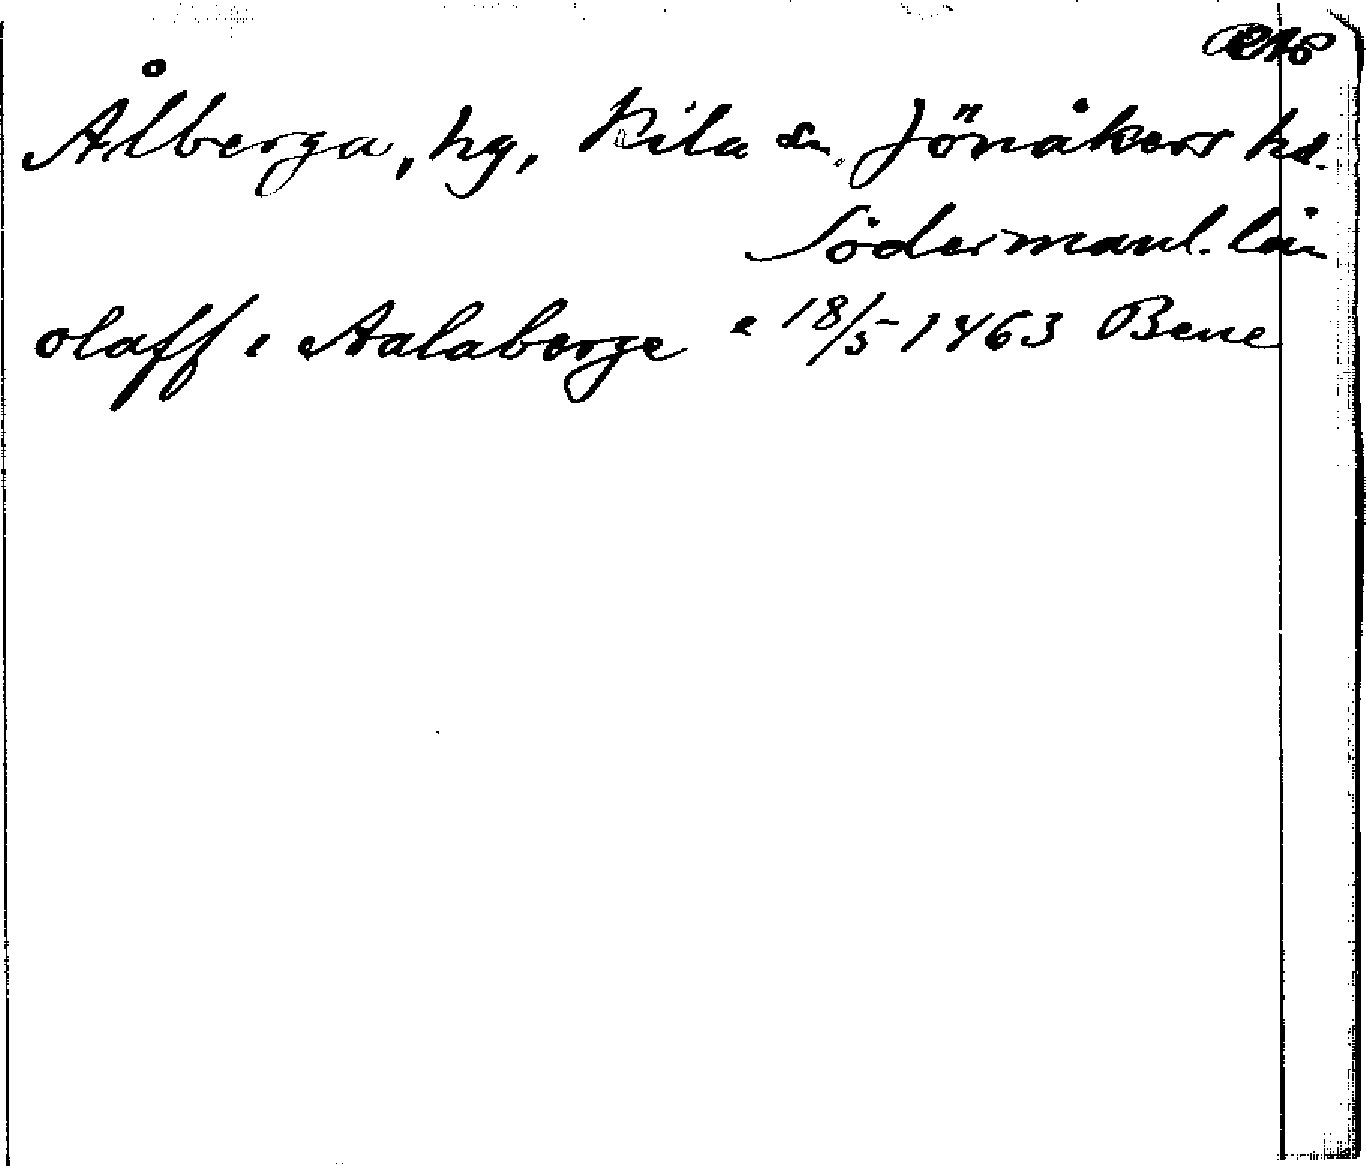 Ålberga, hg, Kila sn. Jönåkers hd.
Södermanl. län
olaff i Aalaberge " 18/5 1463 Bene